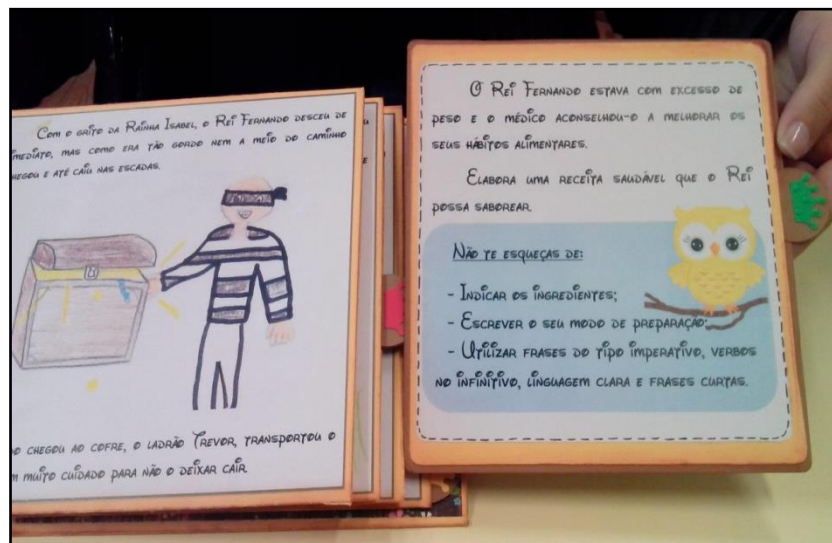 Com o grito da Rainha Isabel, o Rei Fernando desceu de
imediato, mas como era tão gordo nem a meio do caminho
chegou e até caiu nas escadas.
do chegou ao cofre, o ladrão Trevor, transportou o
m muito cuidado para não o deixar cair.
O Rei Fernando estava com excesso de
peso e o médico aconselhou-o a melhorar os
seus hábitos alimentares.
Elabora uma receita saudável que o Rei
possa saborear.
Não te esqueças de:
- Indicar os ingredientes;
- Escrever o seu modo de preparação;
- Utilizar frases do tipo imperativo, verbos
no infinitivo, linguagem clara e frases curtas.